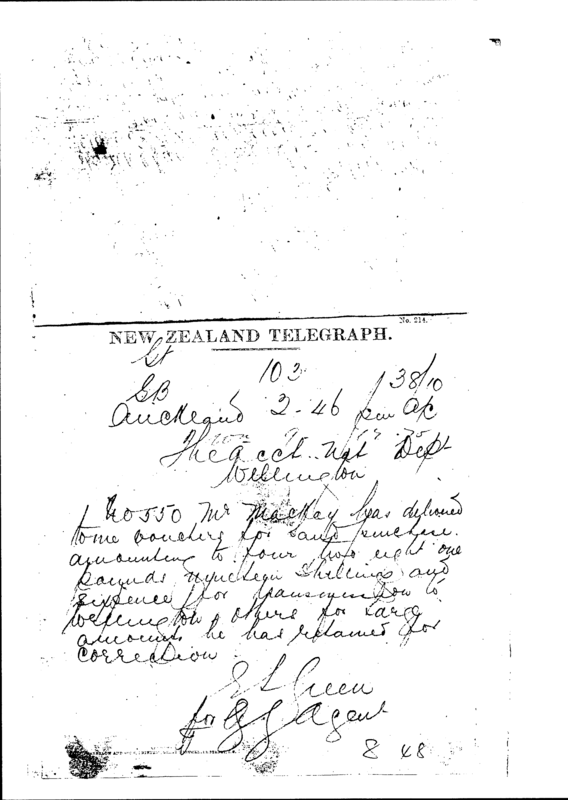 No. 214.
NEW ZEALAND TELEGRAPH.
103
38/10
GB
Auckland 2-46 pm ak
The acct. Nat Dept
Wellington
Mr Mackay has delivered
to me vouchers for land purchase
amounting to four two eight one
pounds nineteen shillings and
sixpence for transmission to
Wellington others for large
amounts he has retained for
correction
E L Green
for Agent
8 48